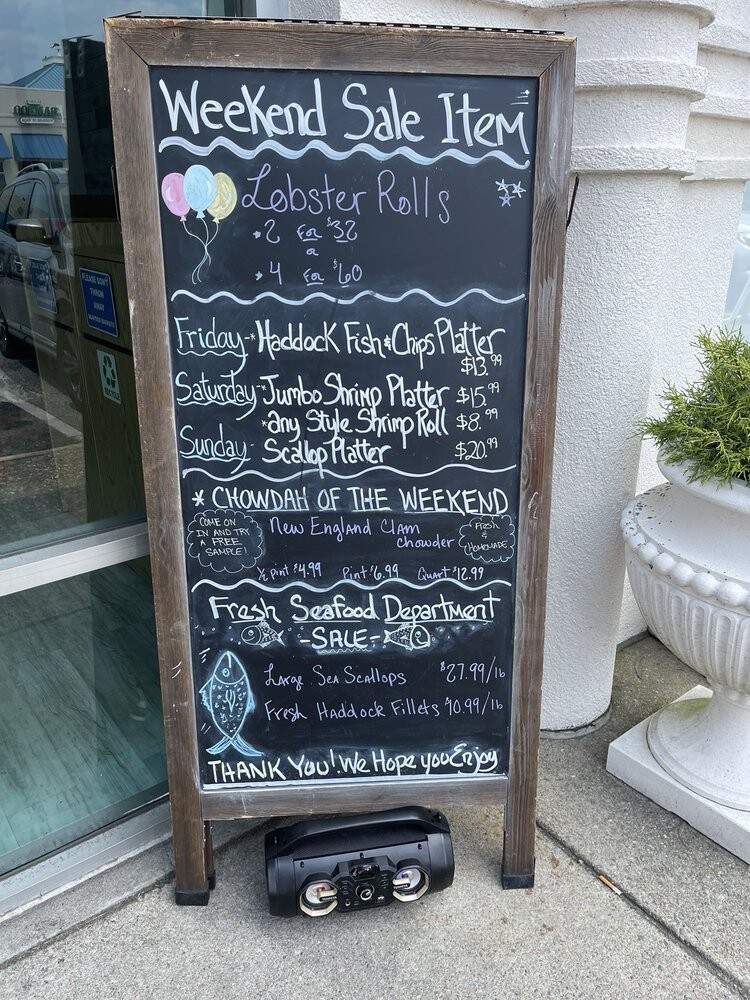 WeeKend Sale Item
Lobster Rolls
•2 For $32
or
•4 For $60
Friday-*Haddock Fish & Chips Platter
$13.99
Saturday-*Jumbo Shrimp Platter $15.99
*any Style Shrimp Roll $8.99
Sunday- Scallop Platter $20.99
* CHOWDAH OF THE WEEKEND
COME ON IN AND TRY A FREE SAMPLE!
New England Clam
Chowder
Fresh & HOMEMADE
½ pint $4.99 Pint $6.99 Quart $12.99
Fresh Seafood Department
-SALE-
Large Sea Scallops $27.99/lb
Fresh Haddock Fillets $10.99/lb
THANK YOU! We Hope you Enjoy
PLEASE DON'T
THROW
AWAY